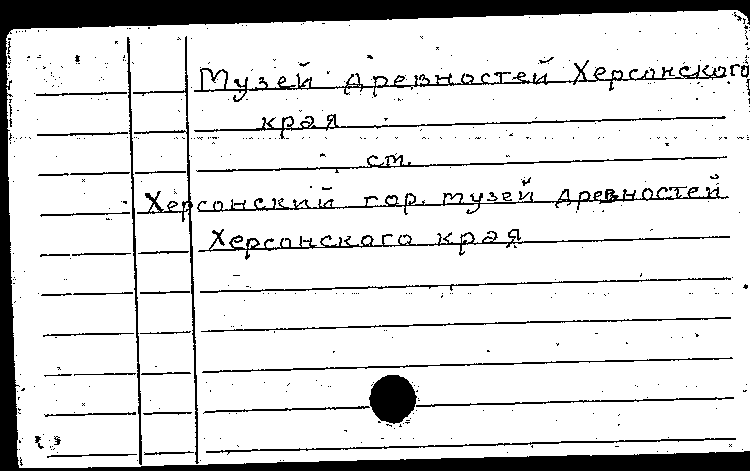 Музей древностей Херсонского
края
см.
Херсонский гор. музей древностей
Херсонского края